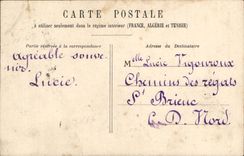 CARTE POSTALE
à utiliser seulement dans le régime intérieur (FRANCE, ALGÉRIE et TUNISIE)
Partie réservée à la correspondance
Adresse du Destinataire
Agréable souve-
nir.
Lucie
Mlle Lucie Vigouroux
Chemins des régats
St Brieuc
C. D. Nord